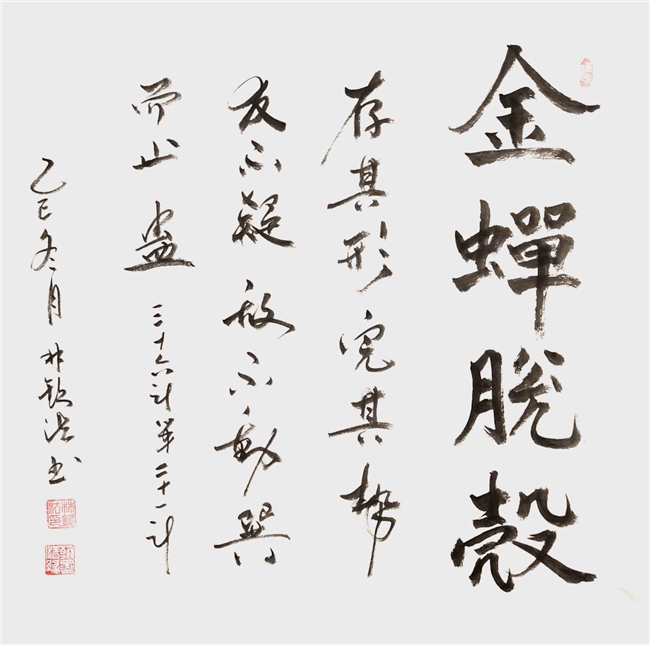 金蟬脫殼
存其形完其勢
友不疑敌不動巽
而止蛊 三十六计第二十一计
乙巳冬月 林钦书